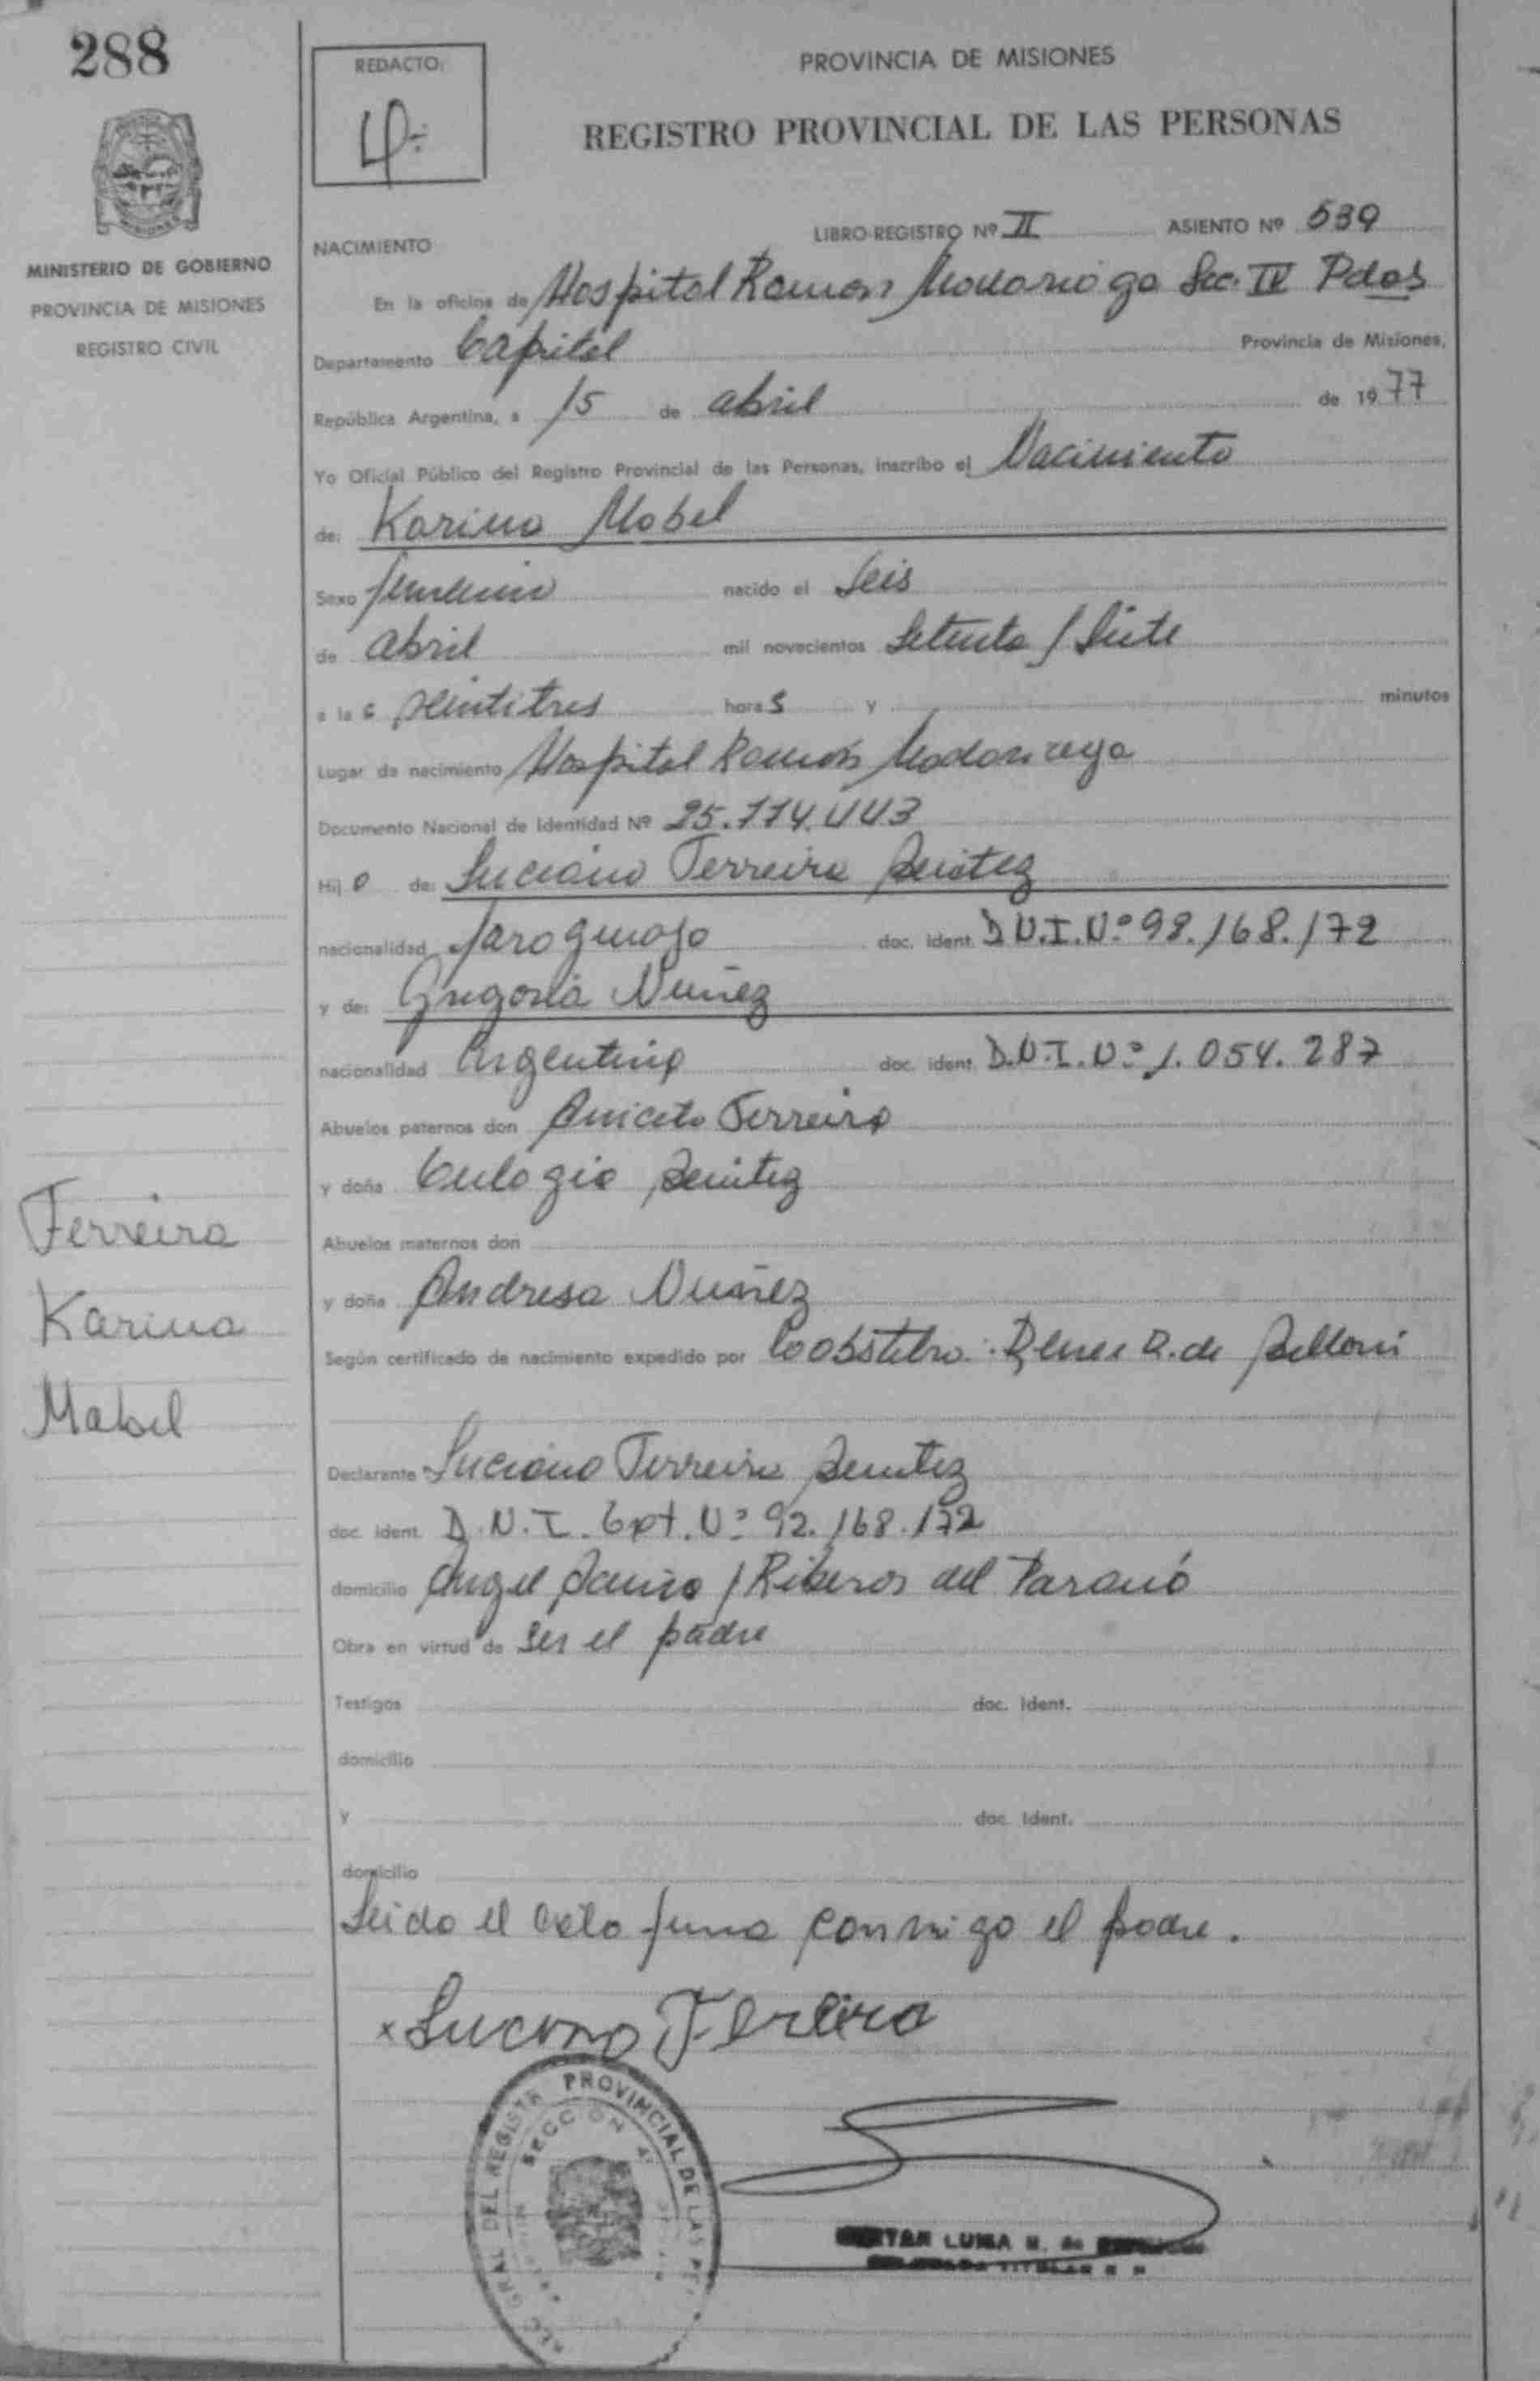 288
REDACTO:
4º
PROVINCIA DE MISIONES
REGISTRO PROVINCIAL DE LAS PERSONAS
MINISTERIO DE GOBIERNO
PROVINCIA DE MISIONES
REGISTRO CIVIL
LIBRO-REGISTRO Nº II ASIENTO Nº 539
NACIMIENTO
En la oficina de Hospital Ramon Madariaga Sec. IV Pdas
Departamento Capital Provincia de Misiones,
República Argentina, a 15 de abril de 1977
Yo Oficial Público del Registro Provincial de las Personas, inscribo el Nacimiento
de: Karina Mabel
Sexo femenino nacido el Seis
de abril mil novecientos Setenta / Siete
a las veintitres horas y minutos
Lugar de nacimiento Hospital Ramón Madariaga
Documento Nacional de Identidad Nº 25.774.443
Hija de: Luciano Ferreira Benitez
nacionalidad Paraguayo doc. ident. D.N.I.Nº 92.168.172
y de: Gregoria Nuñez
nacionalidad Argentina doc. ident. D.N.I.Nº 1.054.287
Abuelos paternos don Aniceto Ferreira
y doña Eulogia Benitez
Abuelos maternos don
y doña Andresa Nuñez
Según certificado de nacimiento expedido por de
Declarante Luciano Ferreira Benitez
doc. ident. D.N.I. Ext. Nº 92.168.172
domicilio Angel / Riberas del Paraná
Obra en virtud de ser el padre
Testigos doc. ident.
domicilio
y doc. ident.
domicilio
Leido el acta firma conmigo el padre.
x Luciano Ferreira
Ferreira
Karina
Mabel
GRAL DEL REGISTR PROVINCIAL DE LAS PE
SECCION 4º
LUISA M. de
TITULAR